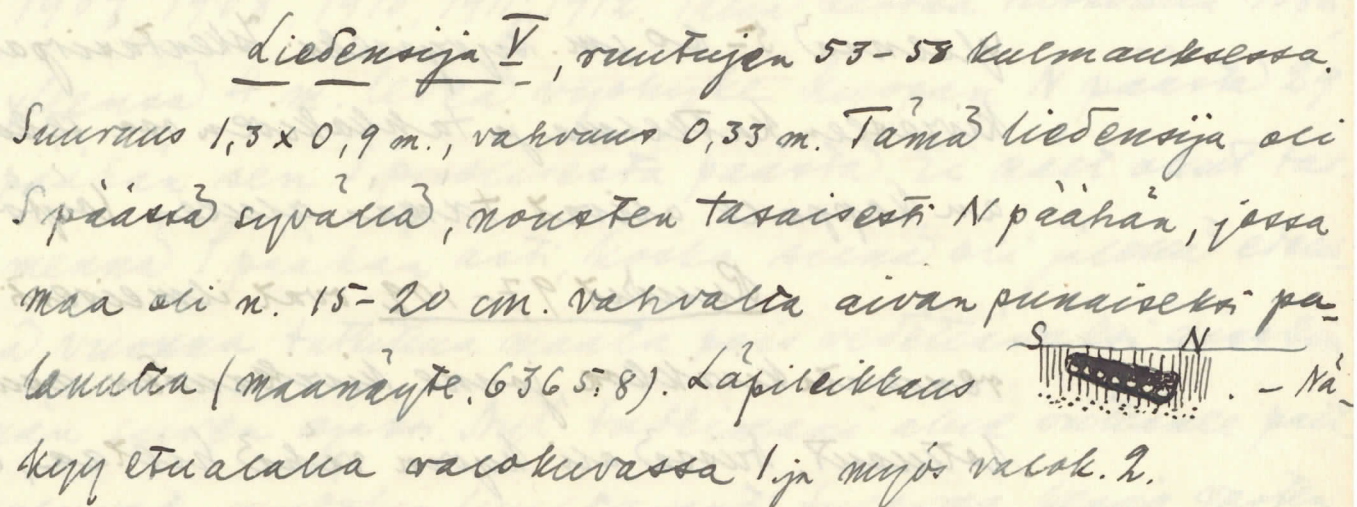 Liedensija V, ruutujen 53-58 kulmauksessa.
Suuruus 1,3 x 0,9 m., vahvuus 0,33 m. Tämä liedensija oli
S päässä syvällä, nousten tasaisesti N päähän, jossa
maa oli n. 15-20 cm. vahvalta aivan punaiseksi pa-
lanutta (maanäyte. 6365:8). Läpileikkaus S N . - Nä-
kyy etualalla valokuvassa 1 ja myös valok. 2.